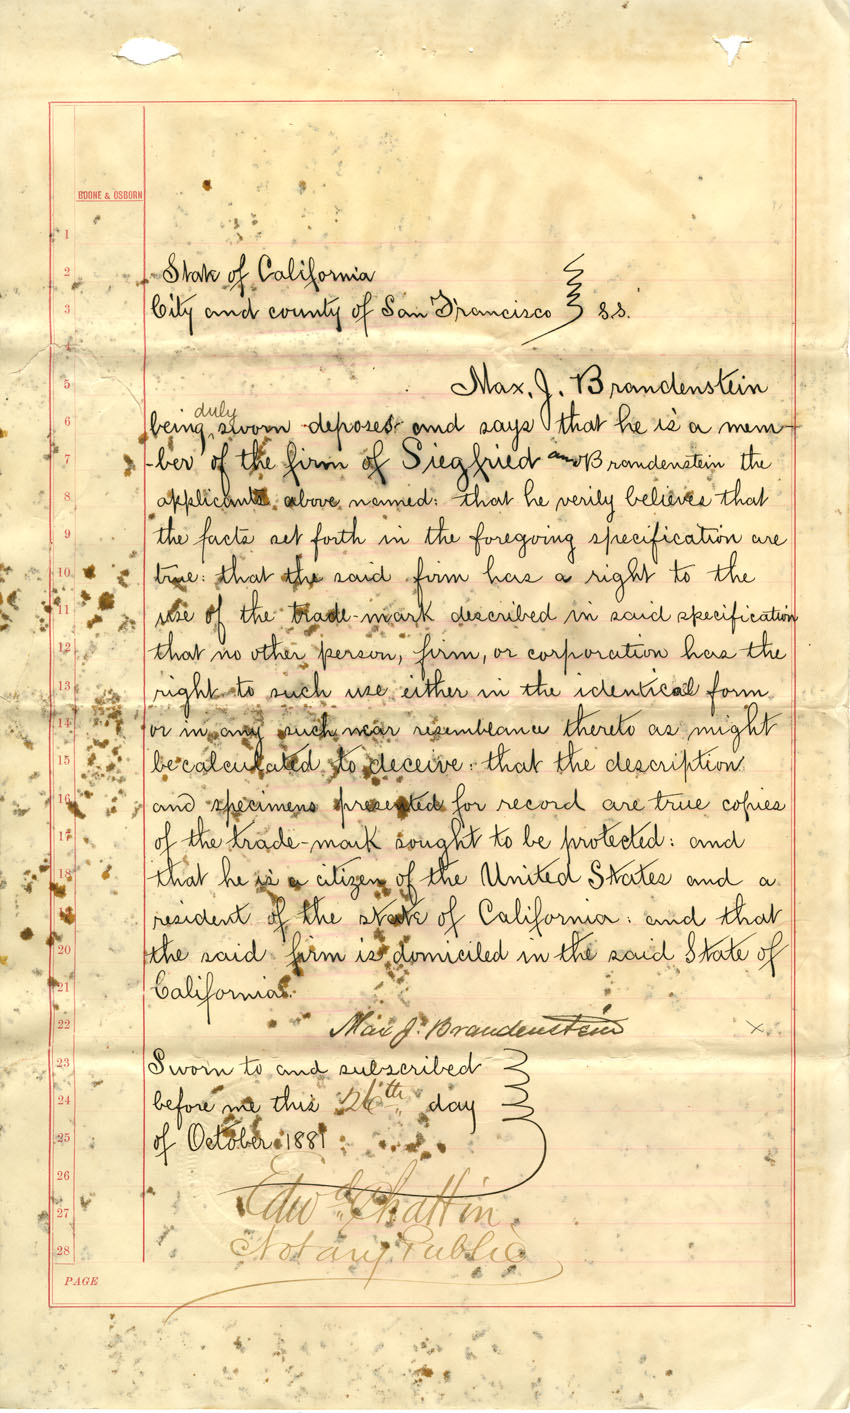 BOONE & OSBORN
1
2 State of California
3 City and county of San Francisco } s.s.
4
5 Max. J. Brandenstein
6 being duly sworn deposes and says that he is a mem-
7 -ber of the firm of Siegfried and Brandenstein the
8 applicants above named: that he verily believes that
9 the facts set forth in the foregoing specification are
10 true: that the said firm has a right to the
11 use of the trade-mark described in said specification
12 that no other person, firm, or corporation has the
13 right to such use either in the identical form
14 or in any such near resemblance thereto as might
15 be calculated to deceive: that the description
16 and specimens presented for record are true copies
17 of the trade-mark sought to be protected: and
18 that he is a citizen of the United States and a
resident of the state of California: and that
20 the said firm is domiciled in the said State of
21 California.
22 Max J. Brandenstein x
23 Sworn to and subscribed
24 before me this 26th day
25 of October 1881
26
27 Edwd Chattin
28 Notary Public
PAGE